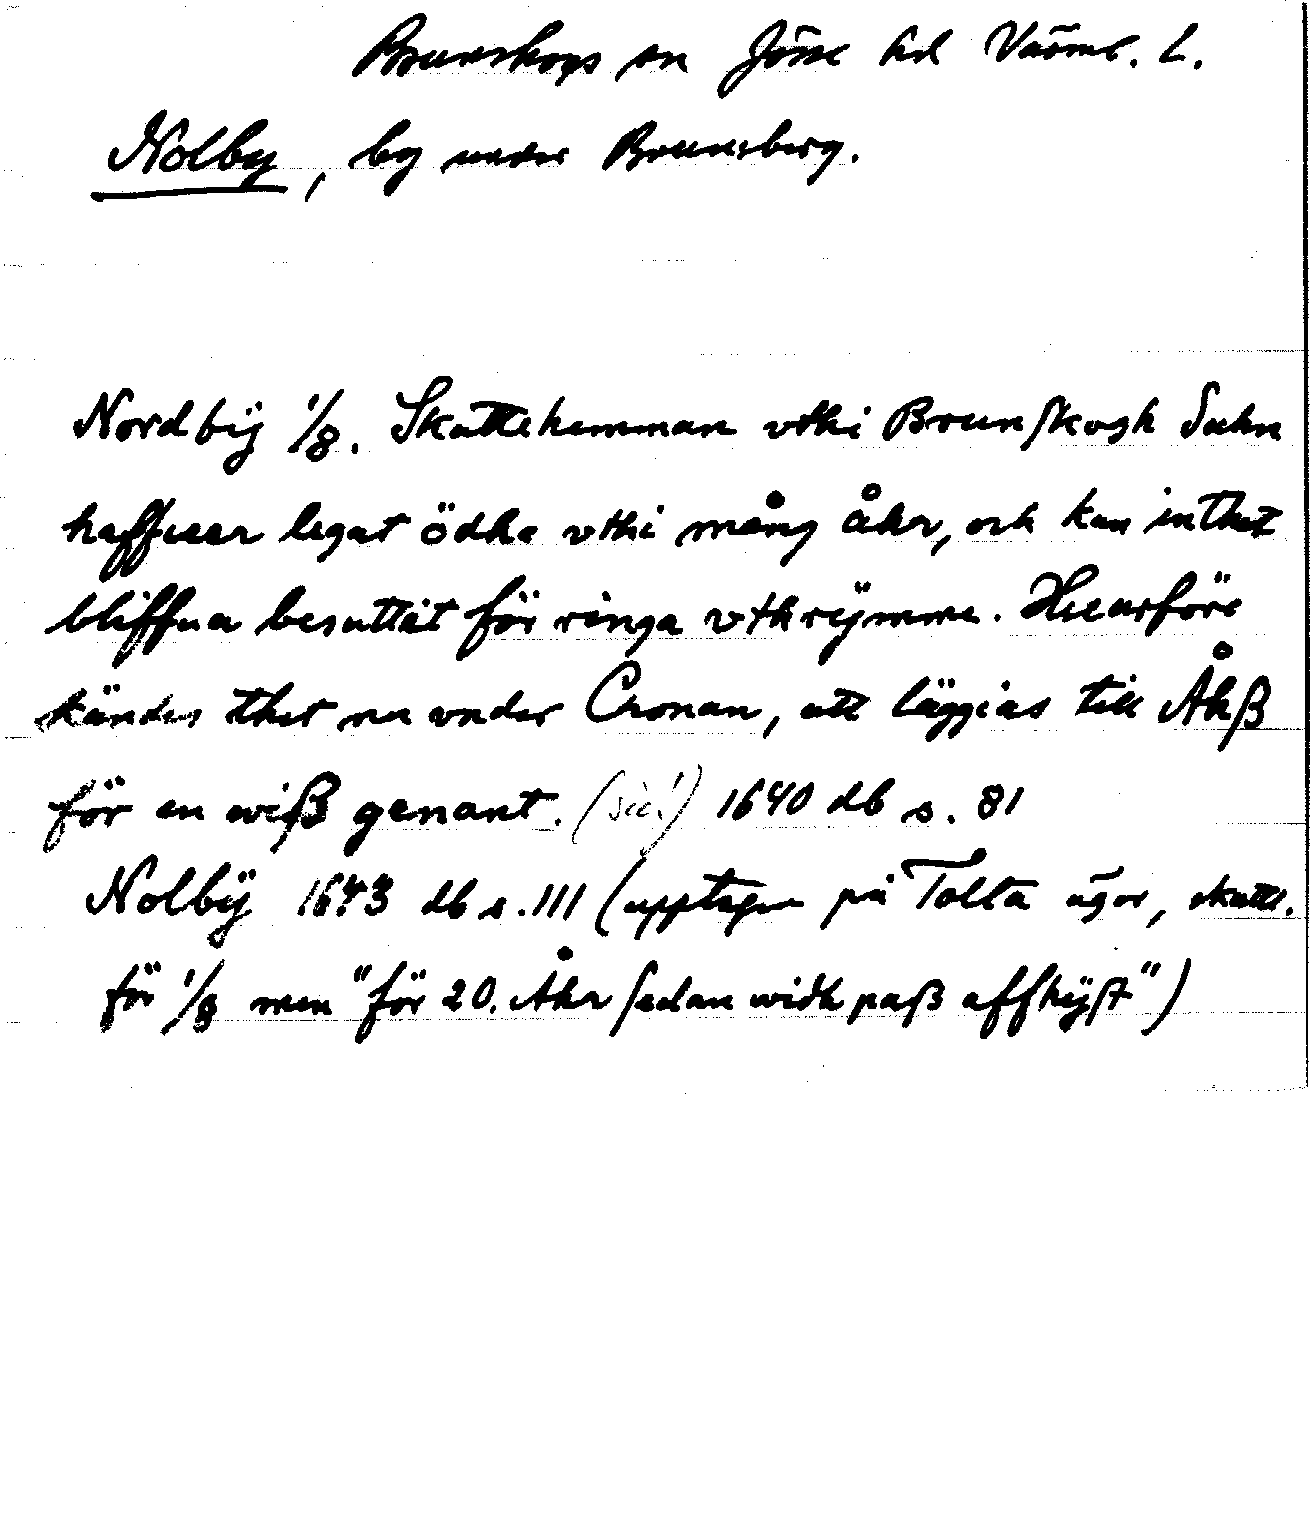 Brunskogs sn Jösse hd Värml. l.
Nolby, by under Brunsberg.
Nordbÿ 1/8. Skattehemman vthi Brunskogh Sokn
haffuer legat ödhe vthi mång åhr, och kan inthet
bliffua besuttit för ringa vthrÿmme. Huarföre
kändes thet nu vnder Cronan, att läggias till Åhß
för en wiß genant. (sic!) 1640 db s. 81
Nolbÿ 1643 db s. 111 (upptagen på Tolta ägor, skatt.
för 1/8 men "för 20. Åhr sedan widh paß affhÿst")